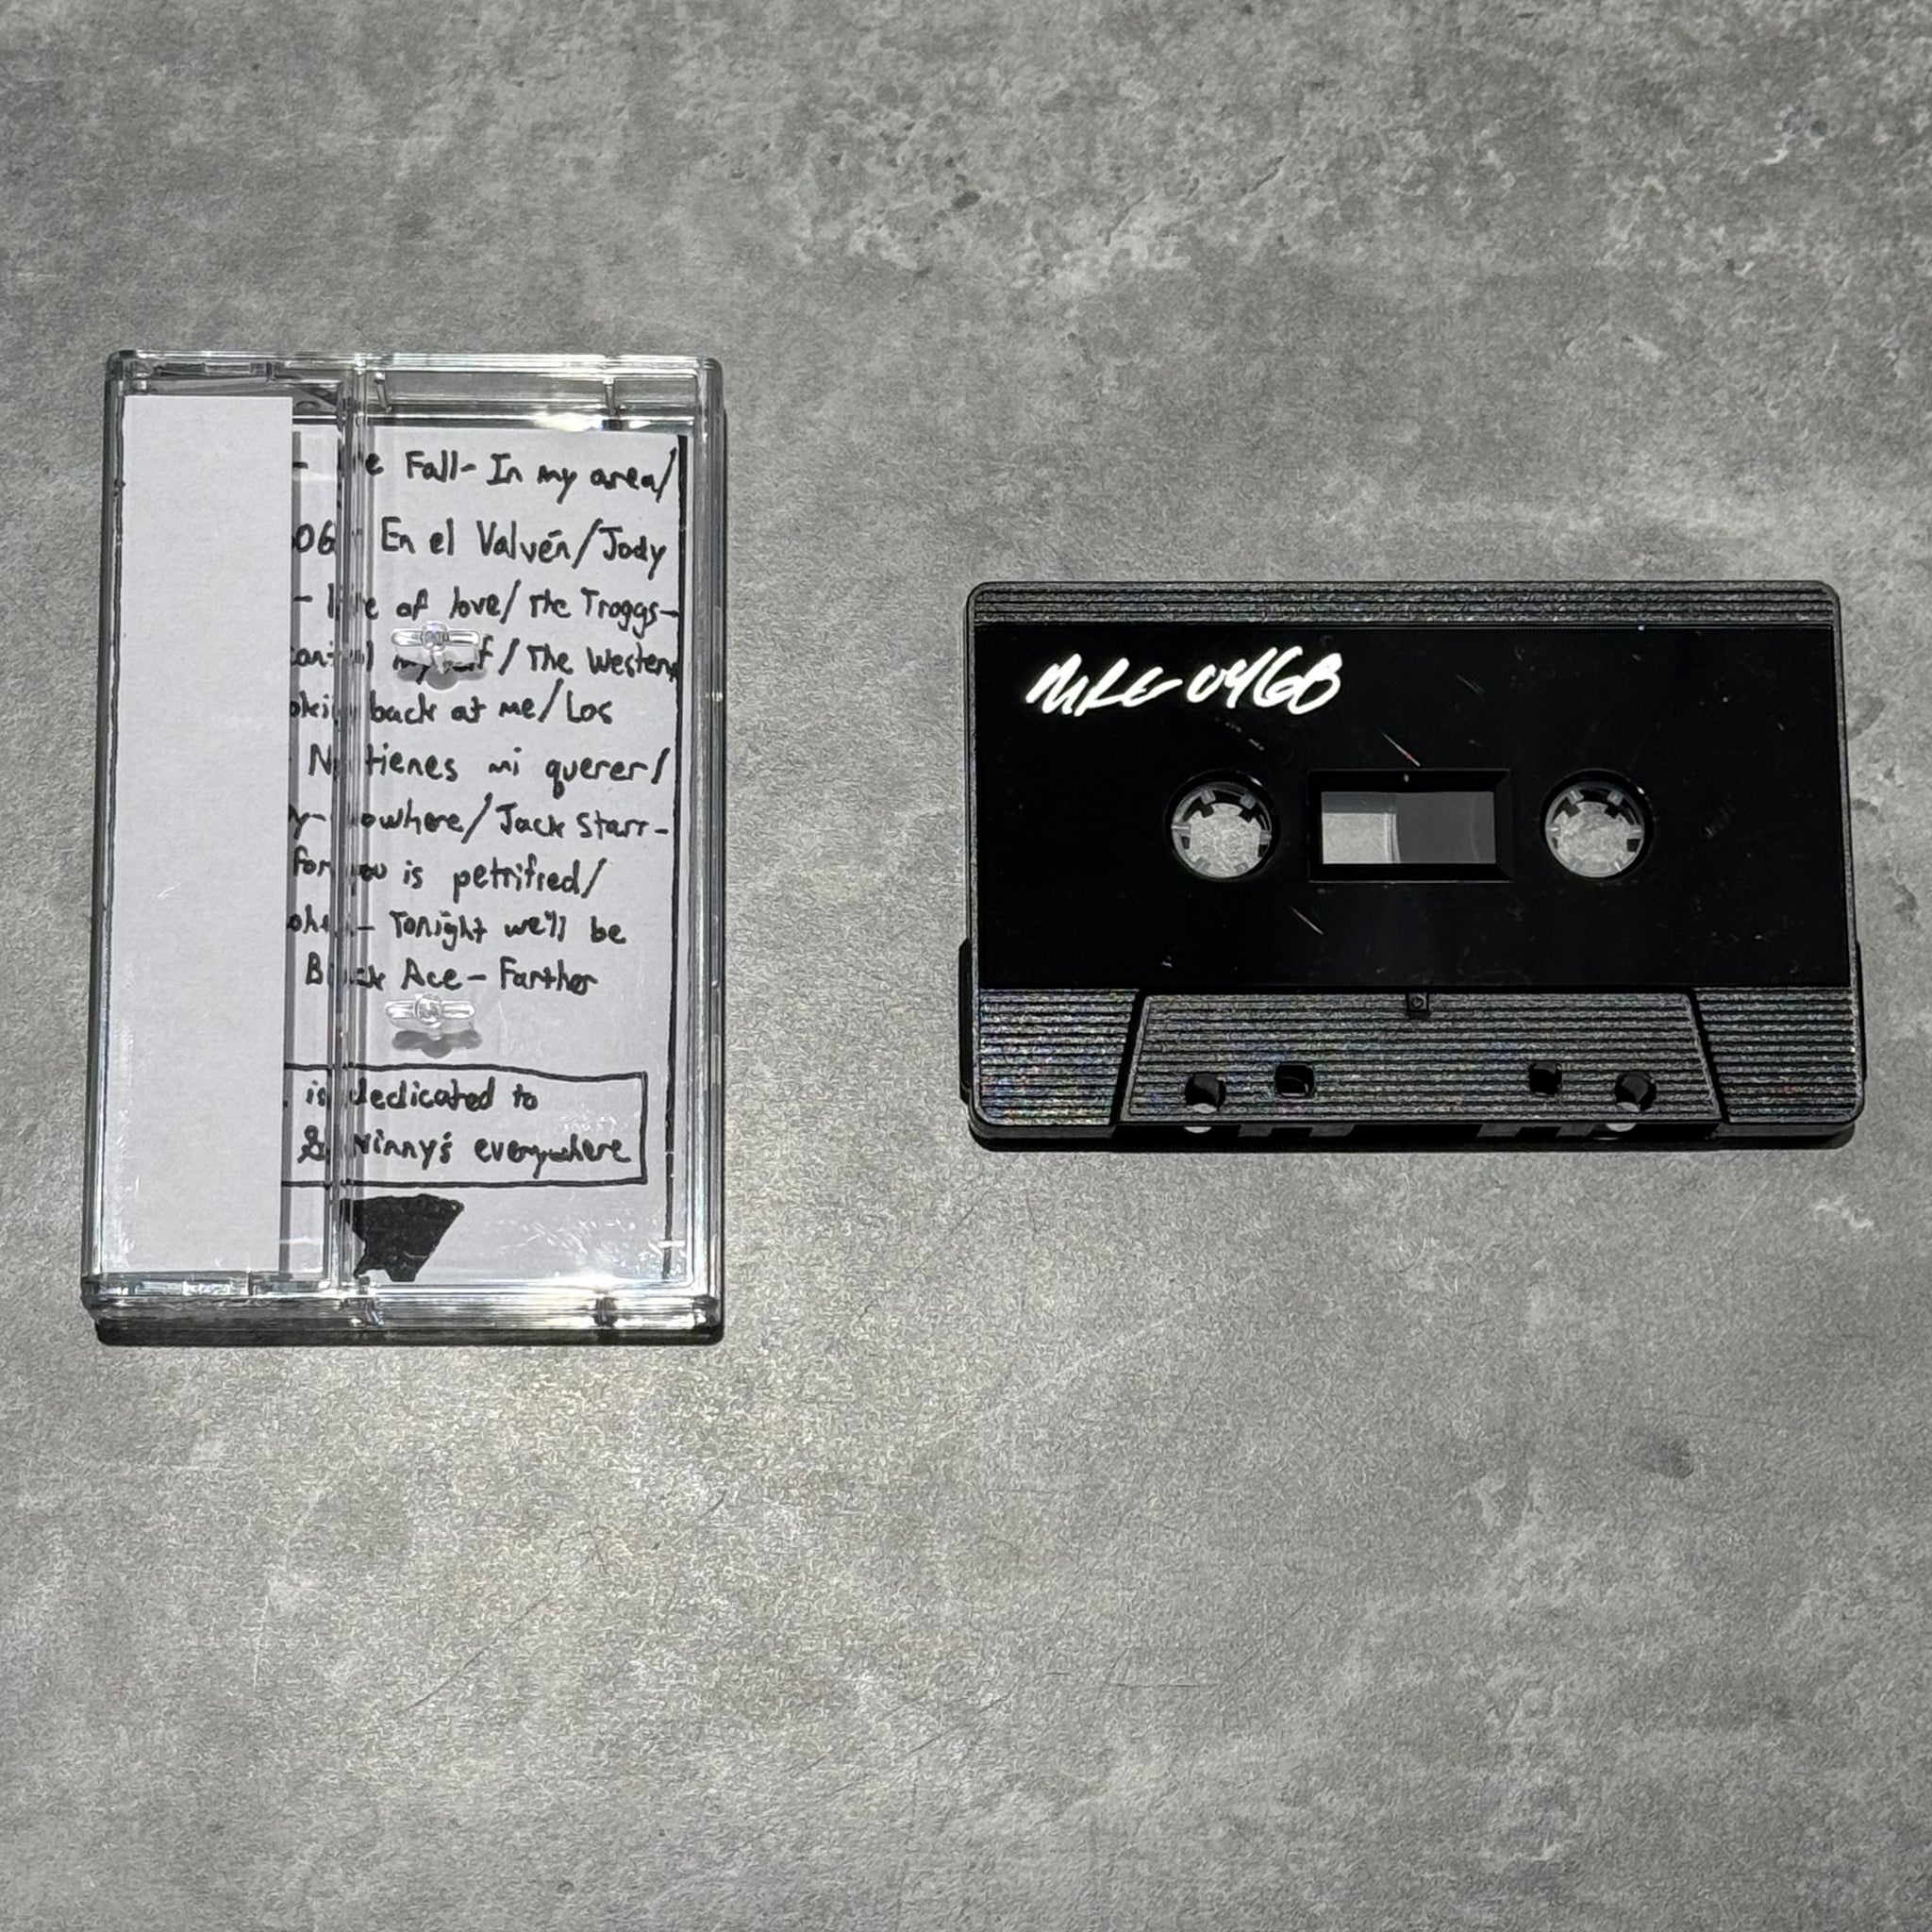 Fall- In my area/
06 En el Valvén/Jody
- of love/The Troggs-
/The Western
back at me/Los
tienes mi querer/
/Jack Starr-
for you is petrified/
- Tonight we'll be
Black Ace- Farther
is dedicated to
& ninny's everywhere
0468